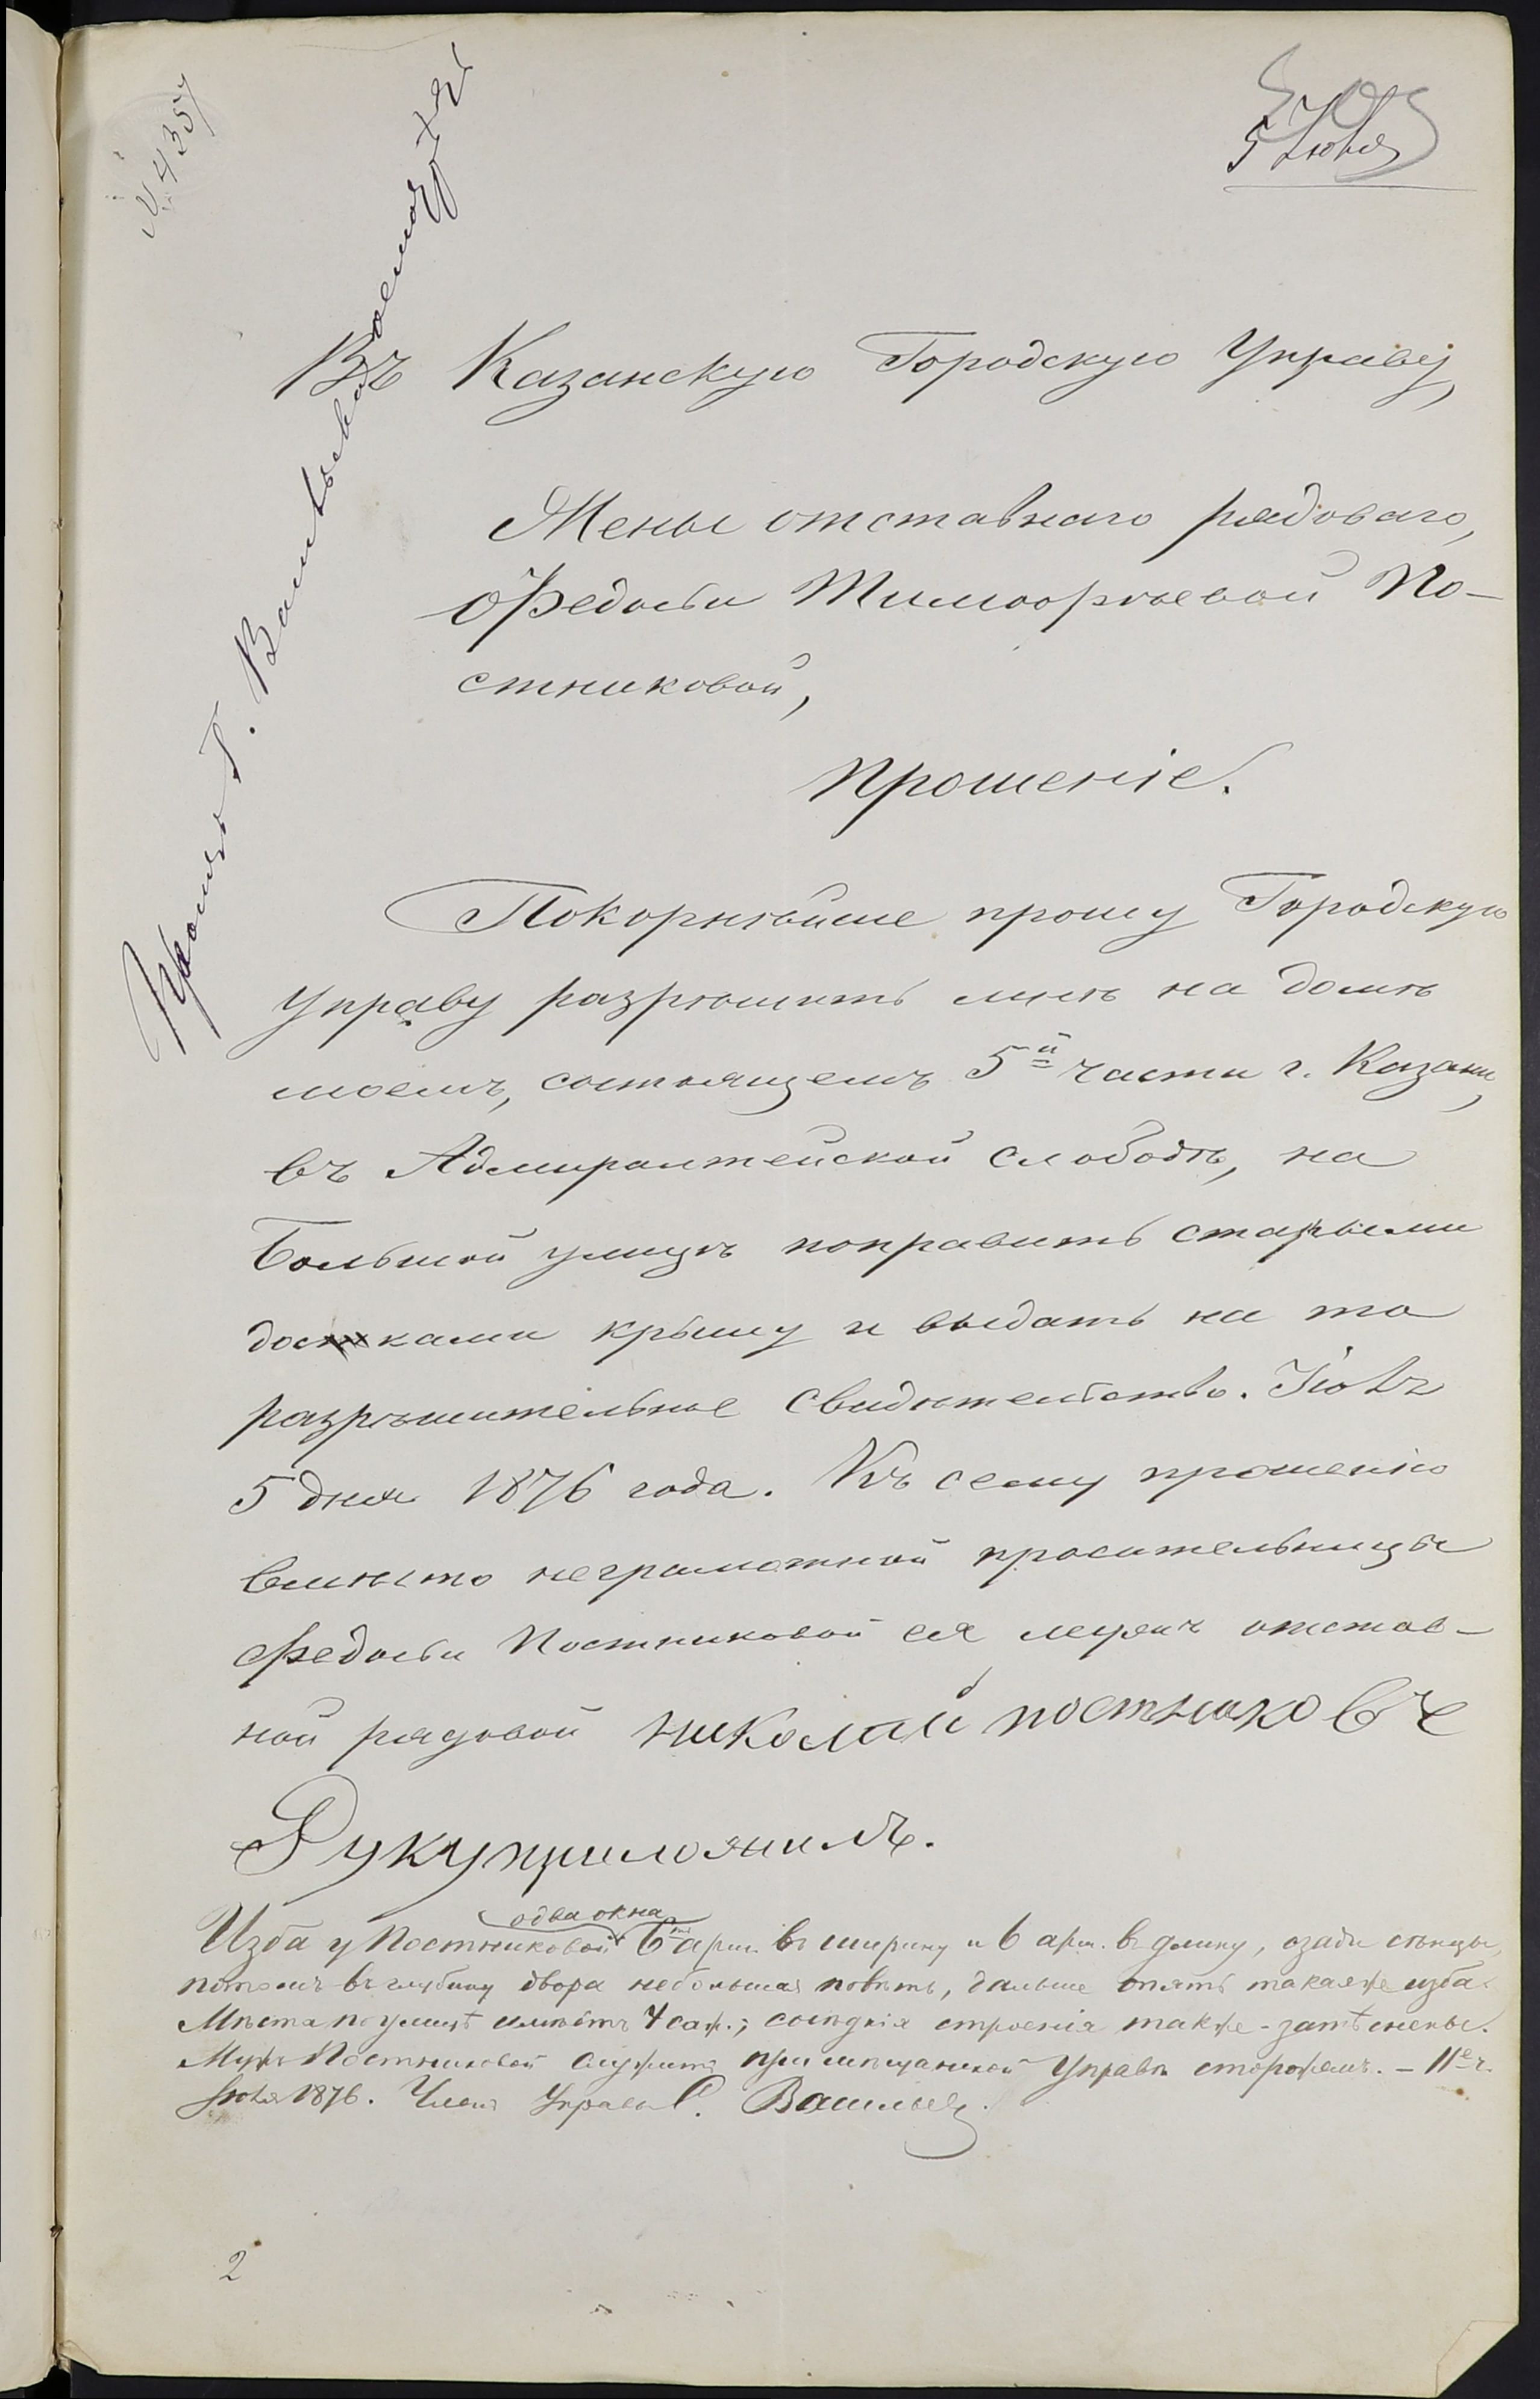 № 4357
5 Июня
Прошу Г. Васильева осмотрѣть
Въ Казанскую Городскую Управу,
Жены отставнаго рядоваго,
Федосьи Тимофѣевой По-
стниковой,
Прошеніе.
Покорнѣйше прошу Городскую
Управу разрѣшить мнѣ на домѣ
моемъ, состоящемъ 5й части г. Казани,
въ Адмиралтейской слободѣ, на
Большой улицѣ поправить старыми
досками крышу и выдать на то
разрѣшительное свидѣтельство. Іюня
5 дня 1876 года. Къ сему прошенію
вмѣсто неграмотной просительницы
Федосьи Постниковой ея мужъ отстав-
ной рядовой николай постниковъ
Руку приложилъ.
о два окна
Изба у Постниковой 6ти арш. въ ширину и 6 арш. въ длину, сзади сѣнцы,
потомъ въ глубину двора небольшая повѣть, дальше опять такая же изба.
Мѣста по улицѣ имѣетъ 4 саж.; сосѣднія строенія также - затѣснены.
Мужъ Постниковой служитъ при мѣщанской Управѣ сторожемъ. - 11е ч.
Іюня 1876. Членъ Управы С. Васильев
2